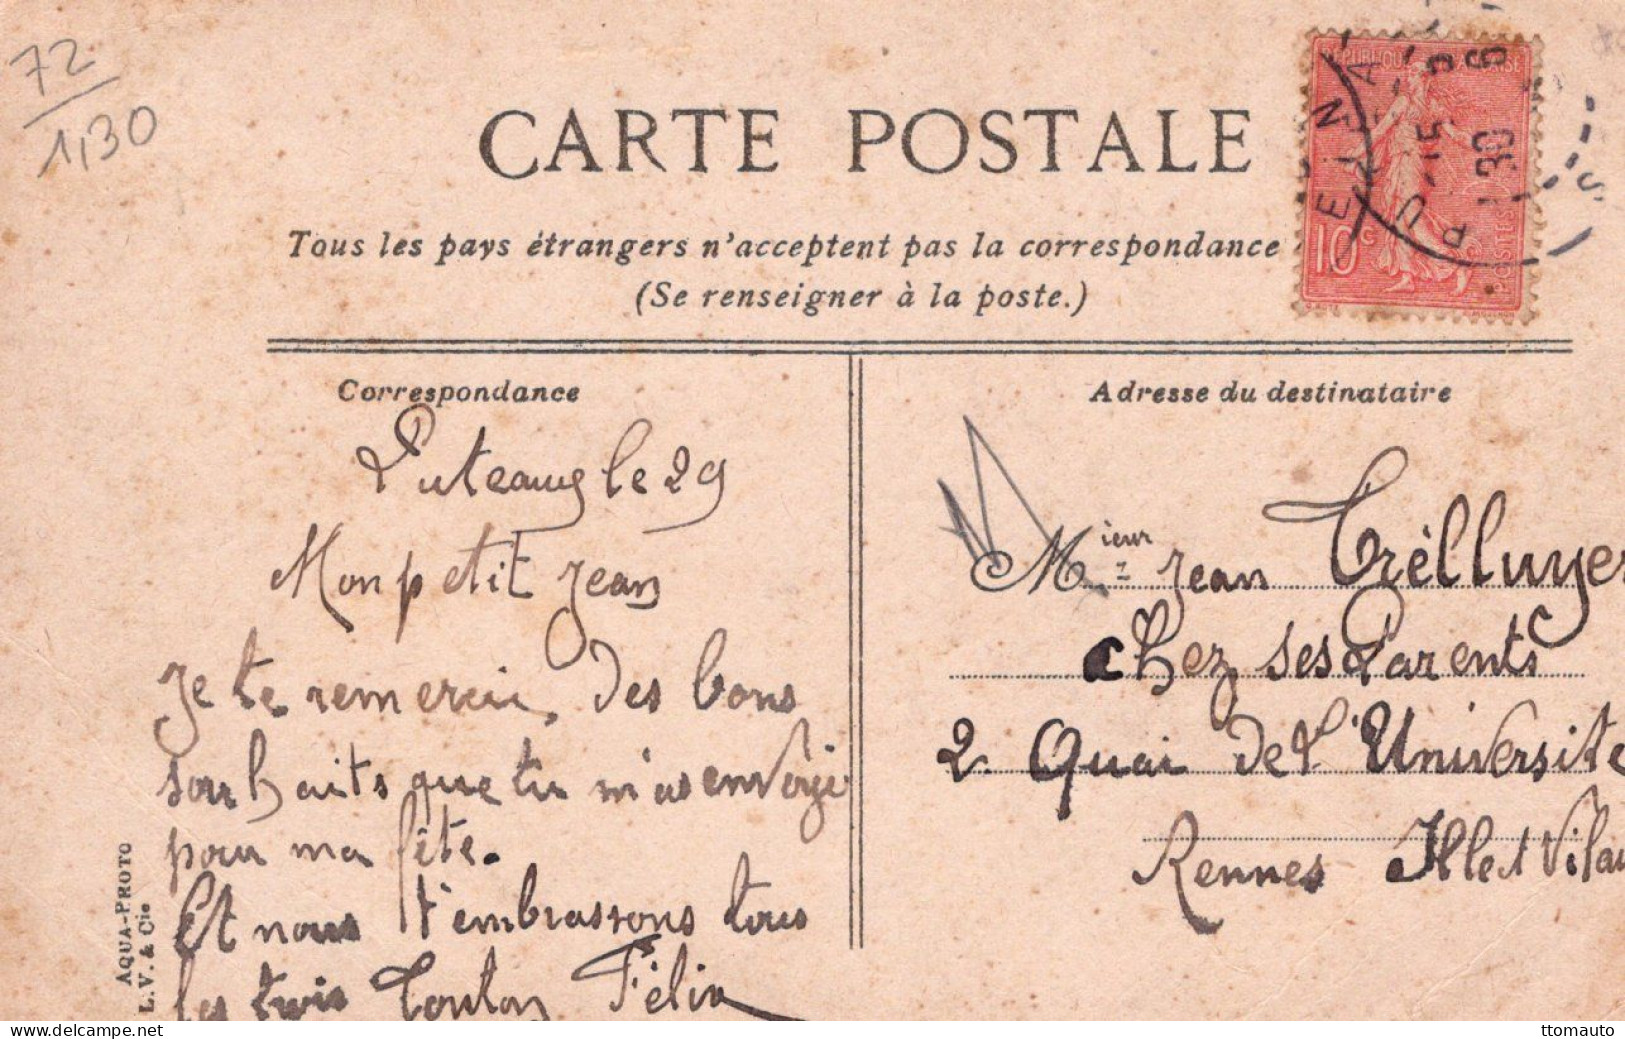 72
1,30
CARTE POSTALE
Tous les pays étrangers n'acceptent pas la correspondance
(Se renseigner à la poste.)
RÉPUBLIQUE FRANÇAISE
10c
POSTES
PUTEAUX
SEINE
15
30
Correspondance
Puteaux le 29
Mon petit Jean
Je te remercie, des bons
souhaits que tu m'as envoyé
pour ma fête.
Et nous t'embrassons tous
les trois Tonton Félix
Adresse du destinataire
Mieur Jean Trélluyer
chez ses Parents
2. Quai de L'Université
Rennes Ille et Vilai
AQUA-PHOTO
L.V. & Cie
delcampe.net
ttomauto